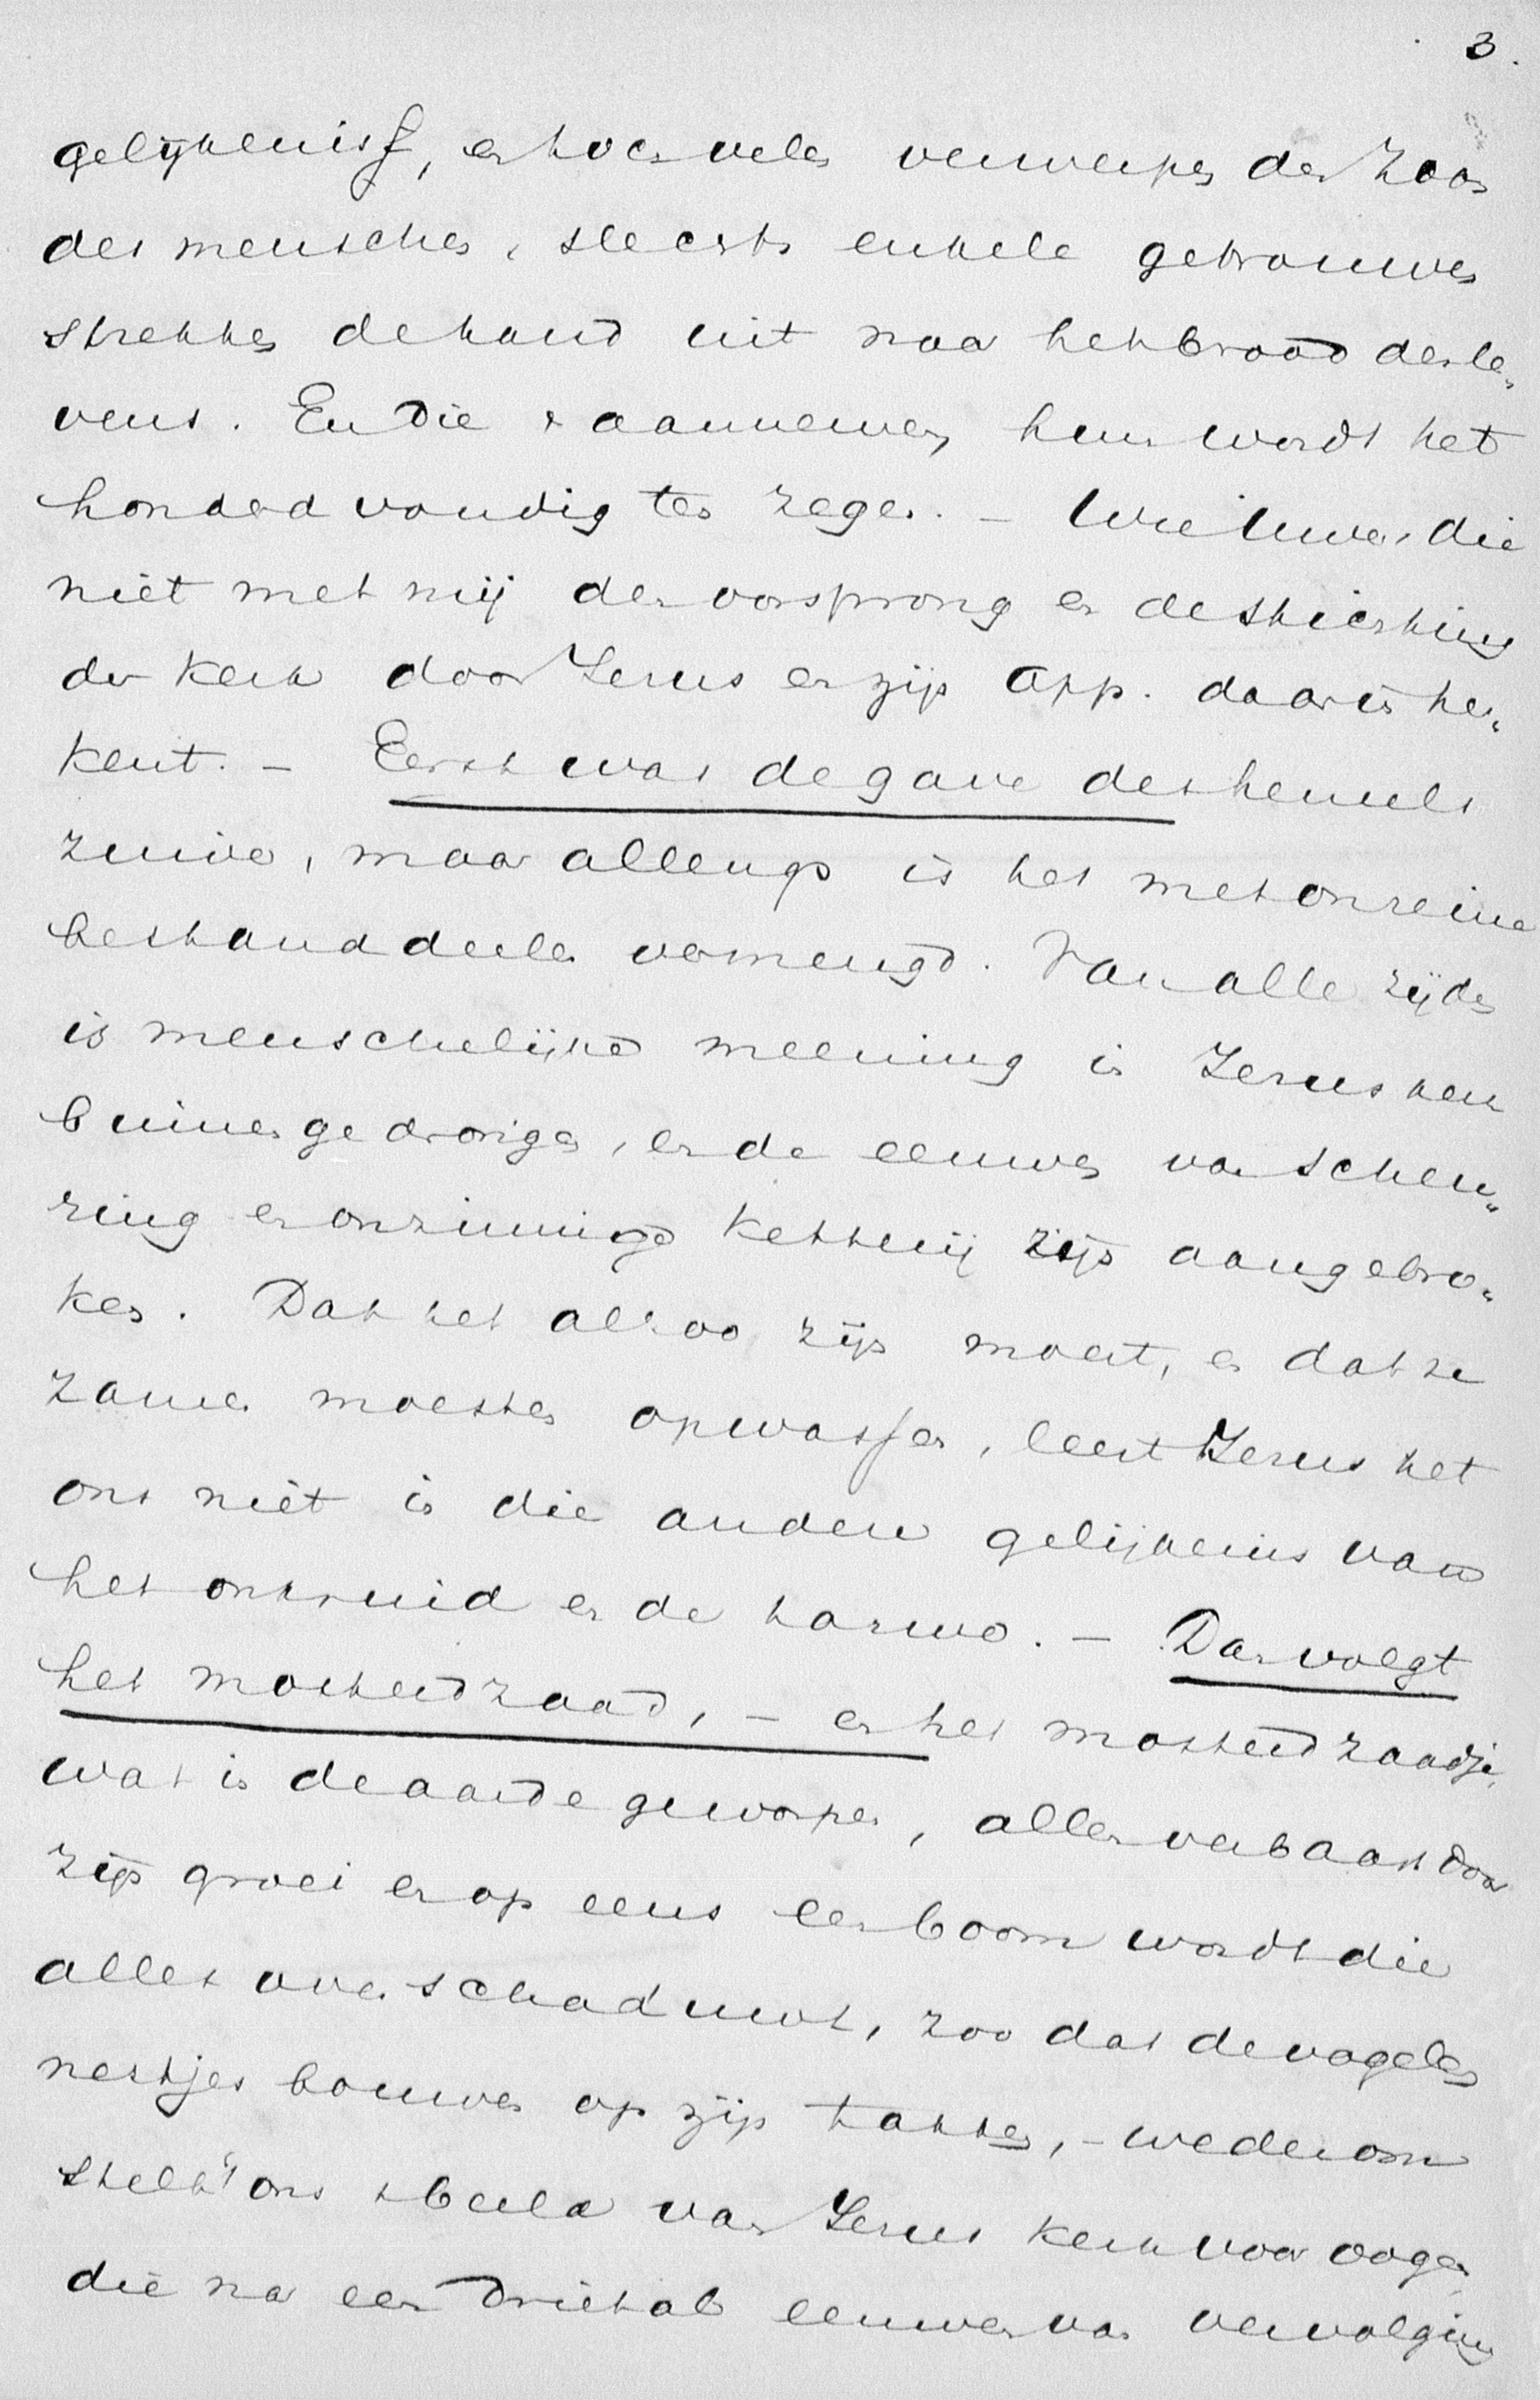 3.
gelijkenisse, en hoe velen verwerpen den Zoon
des menschen, slechts enkele getrouwen
strekken de hand uit naar het brood des le„
vens. En die 't aannemen, hun wordt het
honderdvoudig ten zegen. – Wie Uwer die
niet met mij den oorsprong en de stichting
der Kerk door Jezus en zijn App. daarin her„
kent. – Eerst was de gave des hemels
zuiver, maar allengs is het met onreine
bestanddeelen vermengd. Van alle zijden
is menschelijke meening in Jezus kerk
binnengedrongen, en de eeuwen van scheu„
ring en onzinnige Ketterij zijn aangebro„
ken. Dat het alzoo zijn moest, en dat ze
zamen moesten opwassen, leert Jezus het
ons niet in die andere gelijkenis van
het onkruid en de tarwe. – Dan volgt
het mosterdzaad, – en het mosterdzaadje,
wat in de aarde geworpen, allen verbaast door
zijn groei en op eens een boom wordt die
alles overschaduwt, zoo dat de vogelen
nestjes bouwen op zijn takken, – wederom
stelt 't ons 't beeld van Jezus Kerk voor oogen,
die na een drietal eeuwen van vervolging